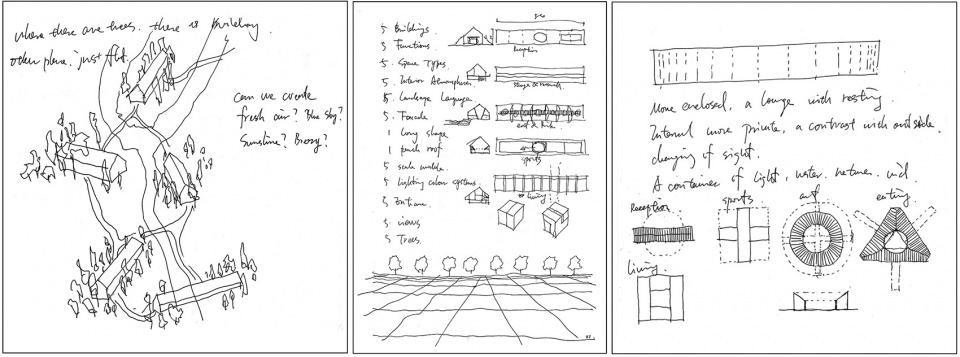 where there are trees. there is building.
other place. just flat.
can we create
fresh air? Blue sky?
Sunshine? Breezy?
5 Buildings
5 Functions
5. Space Types.
5. Interior Atmosphere.
5. Landscape Language
5. Facade
1 long shape
1 roof
5 scale
5 lighting color systems.
5 Entrance
5 views
5 Trees.
Reception
sports
living
More enclosed, a lounge with resting.
Internal more private, a contrast with outside.
changing of sight.
A container of light, water. nature. wind
Reception
sports
art
eating
living